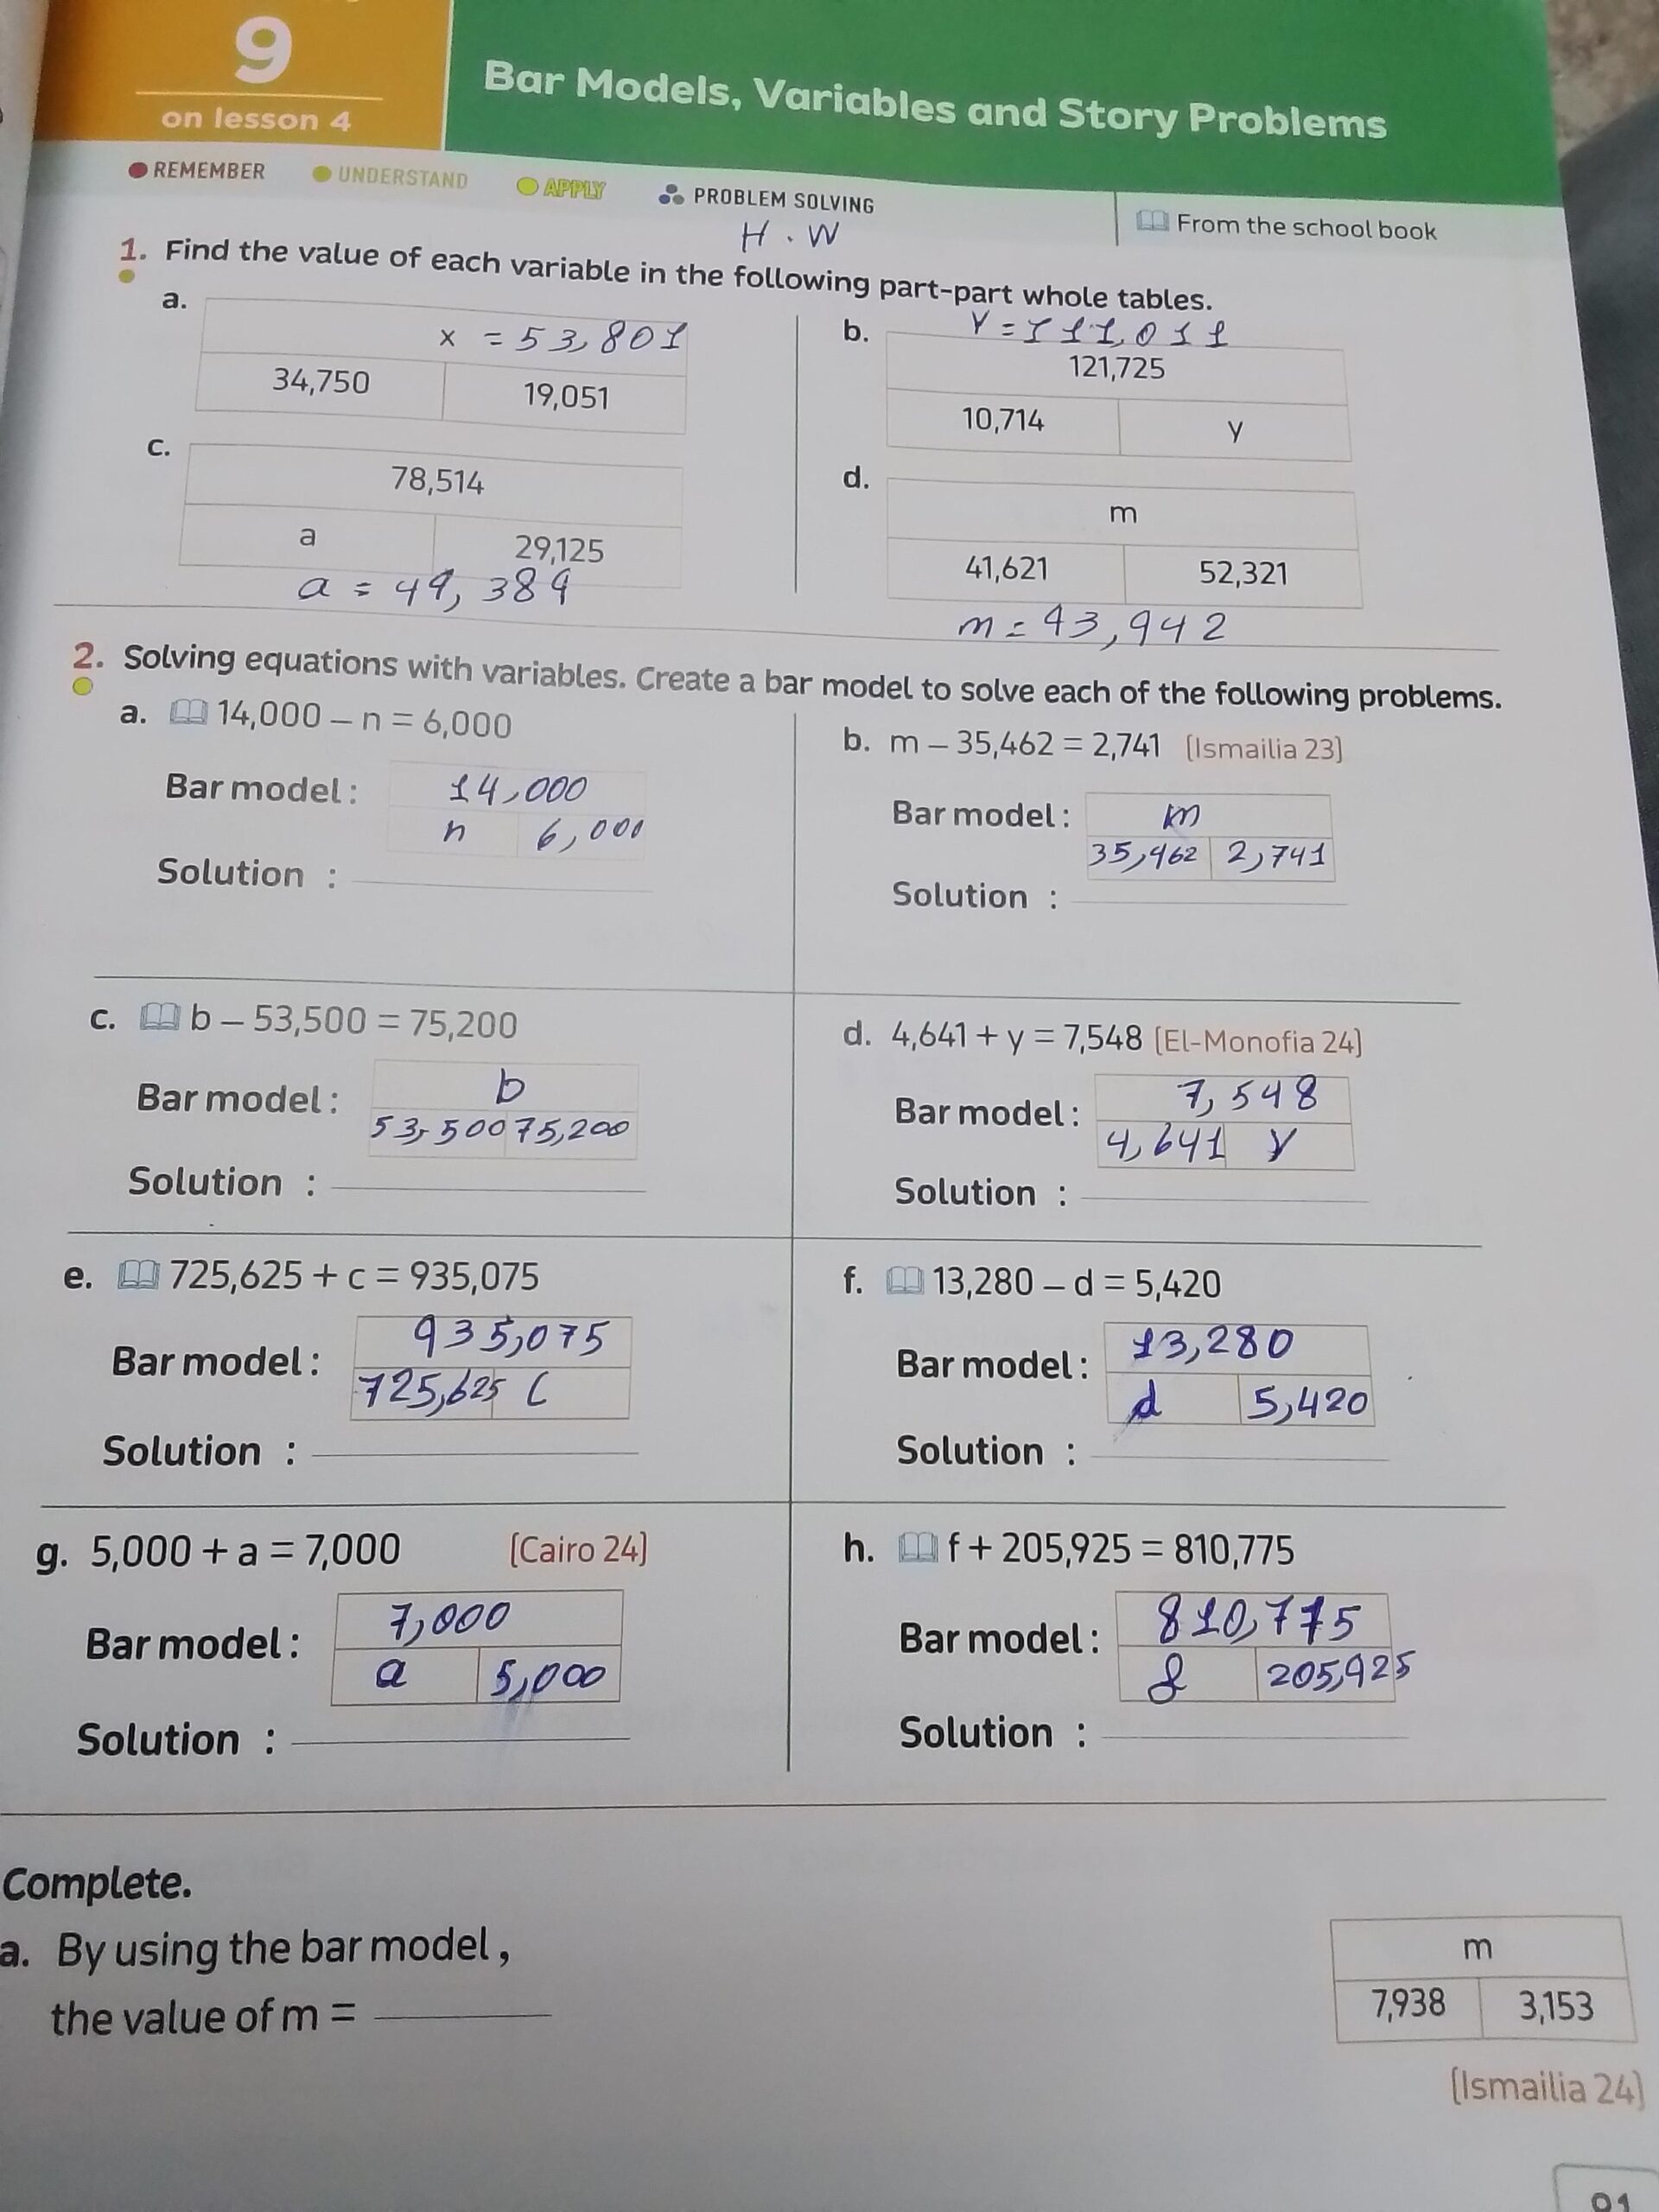 9
on lesson 4
Bar Models, Variables and Story Problems
REMEMBER UNDERSTAND APPLY PROBLEM SOLVING
From the school book
H . W
1. Find the value of each variable in the following part-part whole tables.
a.
x = 53,801
34,750 19,051
b. Y = 111,011
121,725
10,714 y
c.
78,514
a 29,125
a = 49,389
d.
m
41,621 52,321
m = 93,942
2. Solving equations with variables. Create a bar model to solve each of the following problems.
a. 14,000 – n = 6,000
Bar model : 14,000
n 6,000
Solution :
b. m – 35,462 = 2,741 (Ismailia 23)
Bar model : m
35,462 2,741
Solution :
c. b – 53,500 = 75,200
Bar model : b
53,500 75,200
Solution :
d. 4,641 + y = 7,548 (El-Monofia 24)
Bar model : 7,548
4,641 y
Solution :
e. 725,625 + c = 935,075
Bar model : 935,075
725,625 c
Solution :
f. 13,280 – d = 5,420
Bar model : 13,280
d 5,420
Solution :
g. 5,000 + a = 7,000 (Cairo 24)
Bar model : 7,000
a 5,000
Solution :
h. f + 205,925 = 810,775
Bar model : 810,775
f 205,925
Solution :
Complete.
a. By using the bar model ,
the value of m =
m
7,938 3,153
(Ismailia 24)